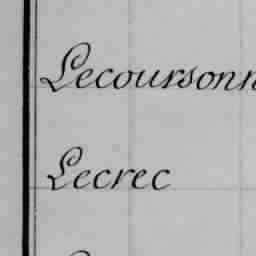 Lecoursonn
Lecrec